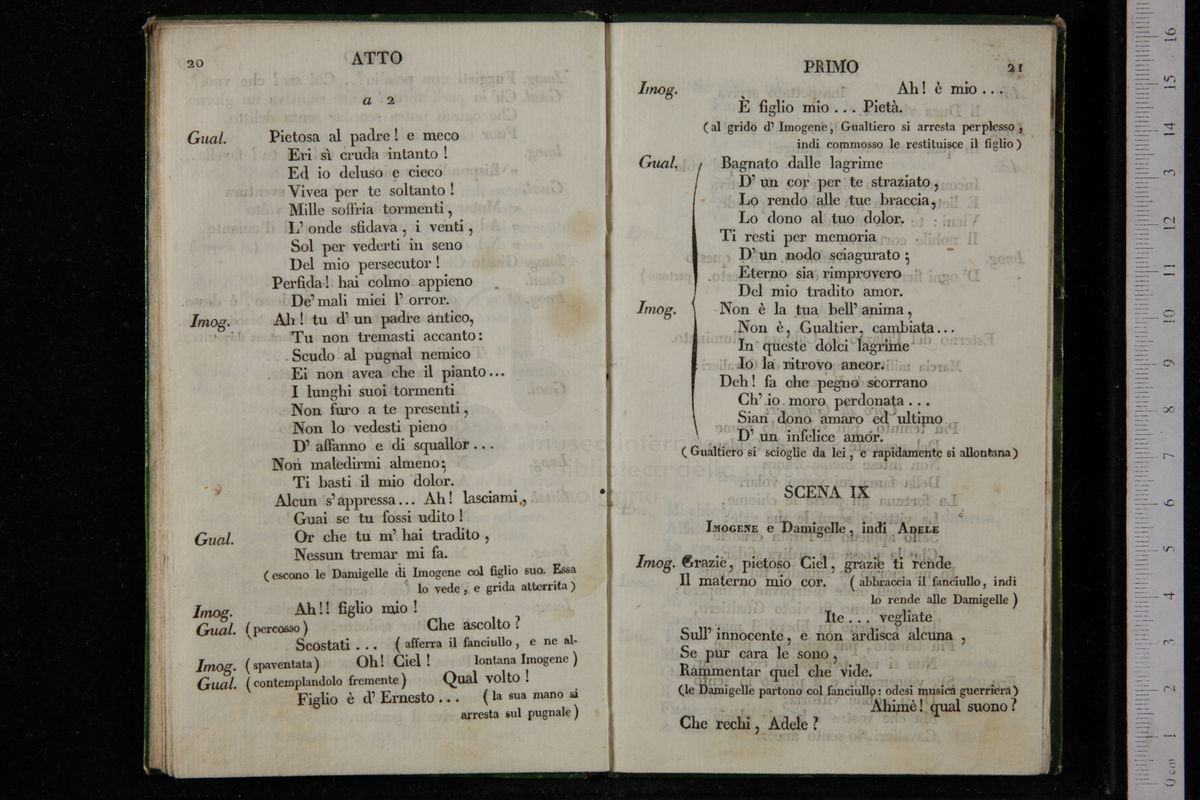 20
ATTO
a 2
Gual. Pietosa al padre! e meco
Eri sì cruda intanto!
Ed io deluso e cieco
Vivea per te soltanto!
Mille soffria tormenti,
L' onde sfidava, i venti,
Sol per vederti in seno
Del mio persecutor!
Perfida! hai colmo appieno
De' mali miei l' orror.
Imog. Ah! tu d' un padre antico,
Tu non tremasti accanto:
Scudo al pugnal nemico
Ei non avea che il pianto...
I lunghi suoi tormenti
Non furo a te presenti,
Non lo vedesti pieno
D' affanno e di squallor...
Non maledirmi almeno;
Ti basti il mio dolor.
Alcun s' appressa... Ah! lasciami,
Guai se tu fossi udito!
Gual. Or che tu m' hai tradito,
Nessun tremar mi fa.
(escono le Damigelle di Imogene col figlio suo. Essa
lo vede, e grida atterrita)
Imog. Ah!! figlio mio!
Gual. (percosso) Che ascolto?
Scostati... (afferra il fanciullo, e ne al-
lontana Imogene)
Imog. (spaventata) Oh! Ciel!
Gual. (contemplandolo fremente) Qual volto!
Figlio è d' Ernesto... (la sua mano si
arresta sul pugnale)
PRIMO
21
Imog. Ah! è mio...
È figlio mio... Pietà.
(al grido d' Imogene, Gualtiero si arresta perplesso,
indi commosso le restituisce il figlio)
Gual. Bagnato dalle lagrime
D' un cor per te straziato,
Lo rendo alle tue braccia,
Lo dono al tuo dolor.
Ti resti per memoria
D' un nodo sciagurato;
Eterno sia rimprovero
Del mio tradito amor.
Imog. Non è la tua bell' anima,
Non è, Gualtier, cambiata...
In queste dolci lagrime
Io la ritrovo ancor.
Deh! fa che pegno scorrano
Ch' io moro perdonata...
Sian dono amaro ed ultimo
D' un infelice amor.
(Gualtiero si scioglie da lei, e rapidamente si allontana)
SCENA IX
IMOGENE e Damigelle, indi ADELE
Imog. Grazie, pietoso Ciel, grazie ti rende
Il materno mio cor. (abbraccia il fanciullo, indi
lo rende alle Damigelle)
Ite... vegliate
Sull' innocente, e non ardisca alcuna,
Se pur cara le sono,
Rammentar quel che vide.
(le Damigelle partono col fanciullo: odesi musica guerriera)
Ahimè! qual suono?
Che rechi, Adele?